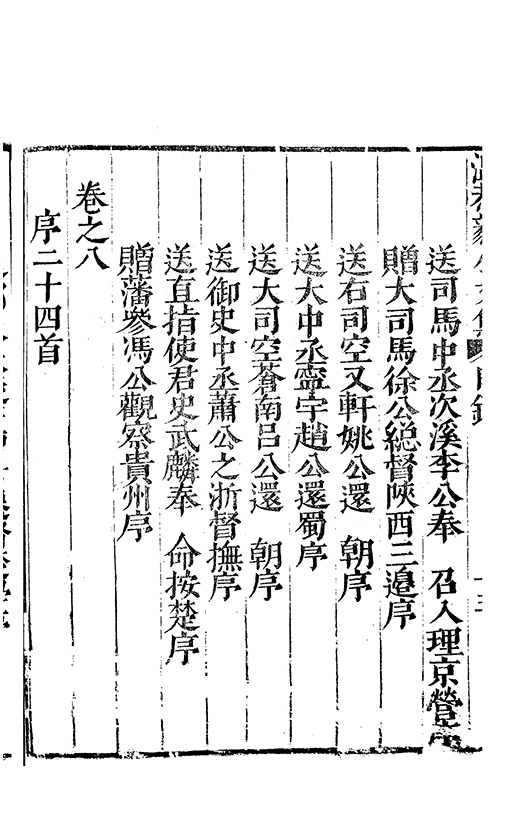 送司馬中丞次溪李公奉　召入理京營序
贈大司馬徐公總督陝西三邉序
送右司空又軒姚公還　朝序
送大中丞寧宇趙公還蜀序
送大司空蒼南呂公還　朝序
送御史中丞蕭公之浙督撫序
送直指使君史武麟奉　命按楚序
贈藩參馮公觀察貴州序
卷之八
序二十四首